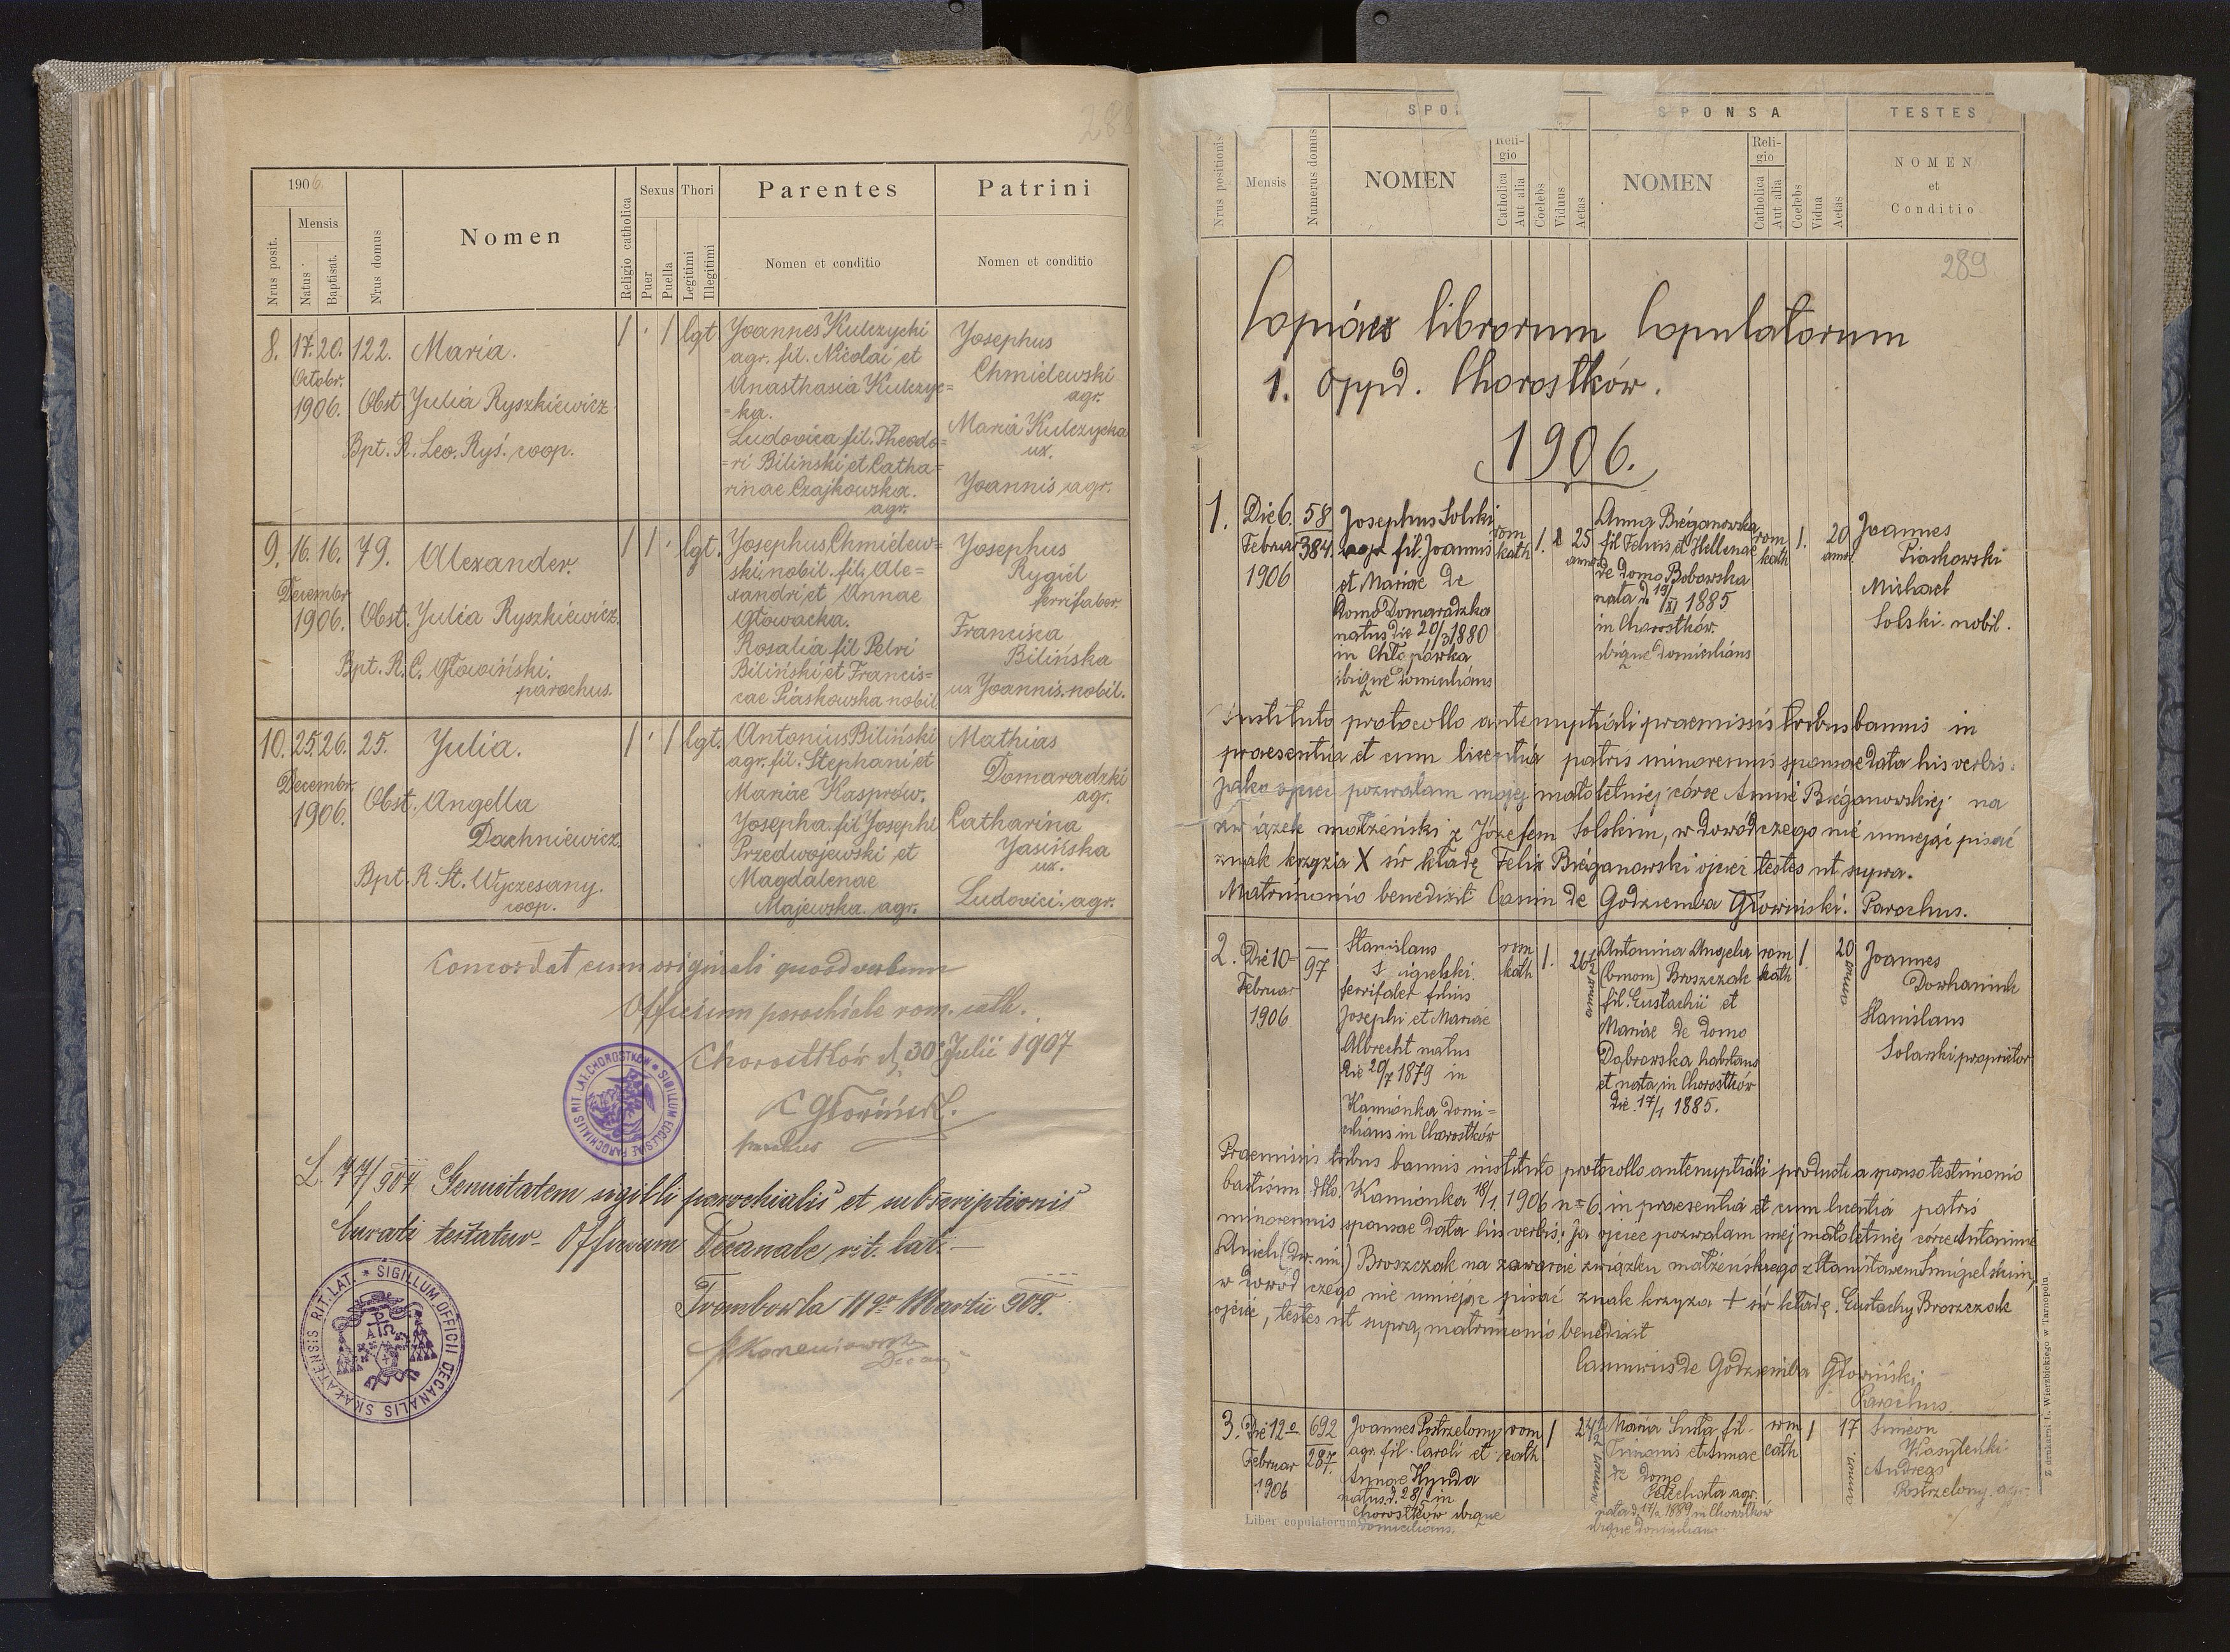 288
1906.
Nrus posit.
Mensis
Natus
Baptisat.
Nrus domus
Nomen
Religio catholica
Sexus
Puer
Puella
Thori
Legitimi
Illegitimi
Parentes
Nomen et conditio
Patrini
Nomen et conditio
8. 17. 20. 122. Maria. 1 · 1 lgt
Octobr.
1906. Obst. Julia Ryszkiewicz
Bpt. R. Leo. Ryś. coop.
Joannes Kulczycki
agr. fil. Nicolai et
Anasthasia Kulczyc=
=ka.
Ludovica fil. Theodo=
=ri Bilinski et Catha=
rinae Czajkowska.
agr.
Josephus
Chmielewski
agr.
Maria Kulczycka
ux.
Joannis agr.
9. 16. 16. 79. Alexander. 1 1 · lgt.
Decembr
1906. Obst. Julia Ryszkiewicz.
Bpt. R. C. Głowiński.
parochus.
Josephus Chmielew=
ski, nobil. fil. Ale=
xandri et Annae
Głowacka.
Rosalia fil Petri
Biliński et Francis=
cae Piaskowska nobil.
Josephus
Rygiel
ferrifaber.
Francisca
Bilińska
ux Joannis. nobil.
10. 25. 26. 25. Julia. 1 · 1 lgt.
Decembr.
1906. Obst. Angella
Dachniewicz.
Bpt. R. St. Wyczesany.
coop.
Antonius Biliński
agr. fil. Stephani et
Mariae Kasprow.
Josepha fil Josephi
Przedwojewski et
Magdalenae
Majewska. agr.
Mathias
Domaradzki
agr.
Catharina
Jasińska
ux.
Ludovici. agr.
Concordat cum originali quoad verbum
Officium parochiale rom. cath.
Chorostków d. 30 Julii 1907
C Głowiński.
parochus
SIGILLUM ECCLESIAE PAROCHIALIS RIT. LAT. CHOROSTKÓW
L. 77/907 Genuitatem sigilli parochialis et subscriptionis
Curati testatur Officium Decanale rit. lat.
Trembowla 11go Martii 908.
Decan
SIGILLUM OFFICII DECANALIS SKAŁATENSIS RIT. LAT.
Nrus positionis
Mensis
Numerus domus
SPO
NOMEN
Reli-
gio
Catholica
Aut alia
Coelebs
Viduus
Aetas
SPONSA
NOMEN
Reli-
gio
Catholica
Aut alia
Coelebs
Vidua
Aetas
TESTES
NOMEN
et
Conditio
289
librorum Copulatorum
1. oppd. Chorostków.
1906.
1. Die 6. 58
Februar 384.
1906
Josephus Solski
agr fil. Joannis
et Mariae de
domo Domaradzka
natus die 20/3 1880
in Chłopówka
ibique domicilians
rom
kath 1. 25
annor
Anna Bieganowska
fil Felicis et Hellenae
de domo Bobowska
nata d. 19/XI 1885
in Chorostków.
ibique domicilians
rom
kath 1. 20
annor.
Joannes
Piaskowski
Michael
Solski. nobil.
Instituto protocollo antenuptiali praemissis tribus bannis in
praesentia et cum licentia patris minorennis sponsae data his verbis:
Jako ojciec pozwalam mojej małoletniej córce Annie Bieganowskiej na
związek małżeński z Józefem Solskim, w dowód czego nie umiejąc pisać
znak krzyża X św kładę Felix Bieganowski ojciec testes ut supra.
Matrimonio benedixit Casim de Godziemba Głowiński. Parochus.
2. Die 10 97
Februar
1906
Stanislaus
S igielski
ferrifaber filius
Josephi et Mariae
Albrecht natus
die 20/7 1879 in
Kamionka domi=
cilians in Chorostków
rom
kath 1. 26 1/2 annor
Antonina Angela
(bmom) Broszczak
fil. Eustachii et
Mariae de domo
Dąbrowska habitans
et nata in Chorostków
die 17/1 1885.
rom
kath 1. 20 annor
Joannes
Dowhaniuk
Stanislaus
Solarski proprietor
Praemissis tribus bannis instituto protocollo antenuptiali producti a sponso testimonio
baptism. ddto. Kamionka 18/1. 1906 n=6. in praesentia et cum licentia patris
minorennis sponsae data his verbis: Ja ojciec pozwalam mej małoletniej córce Antoninie
Anieli (dw. im) Broszczak na zawarcie związku małżeńskiego z Stanisławem Śmigielskim,
w dowód czego nie umiejąc pisać znak krzyża + św kładę. Eustachy Broszczak
ojciec, testes ut supra, matrimonio benedixit
Casimirus de Godziemba Głowiński.
Parochus.
3. Die 12o 692
Februar 287.
1906
Joannes Postrzelony
agr. fil. Caroli et
Annae Hynda
natus d. 28/ in
Chorostków ibique
domicilians.
rom
kath 1 24 1/2 annor
Maria Suta fil.
et Annae
de domo
agr.
nata d. 17/ 1889 in Chorostków
ibique domicilians
rom
cath 1 17 annor.
Simeon
Andreas
Postrzelony. agr.
Liber copulatorum
Z drukarni L. Wierzbickiego w Tarnopolu